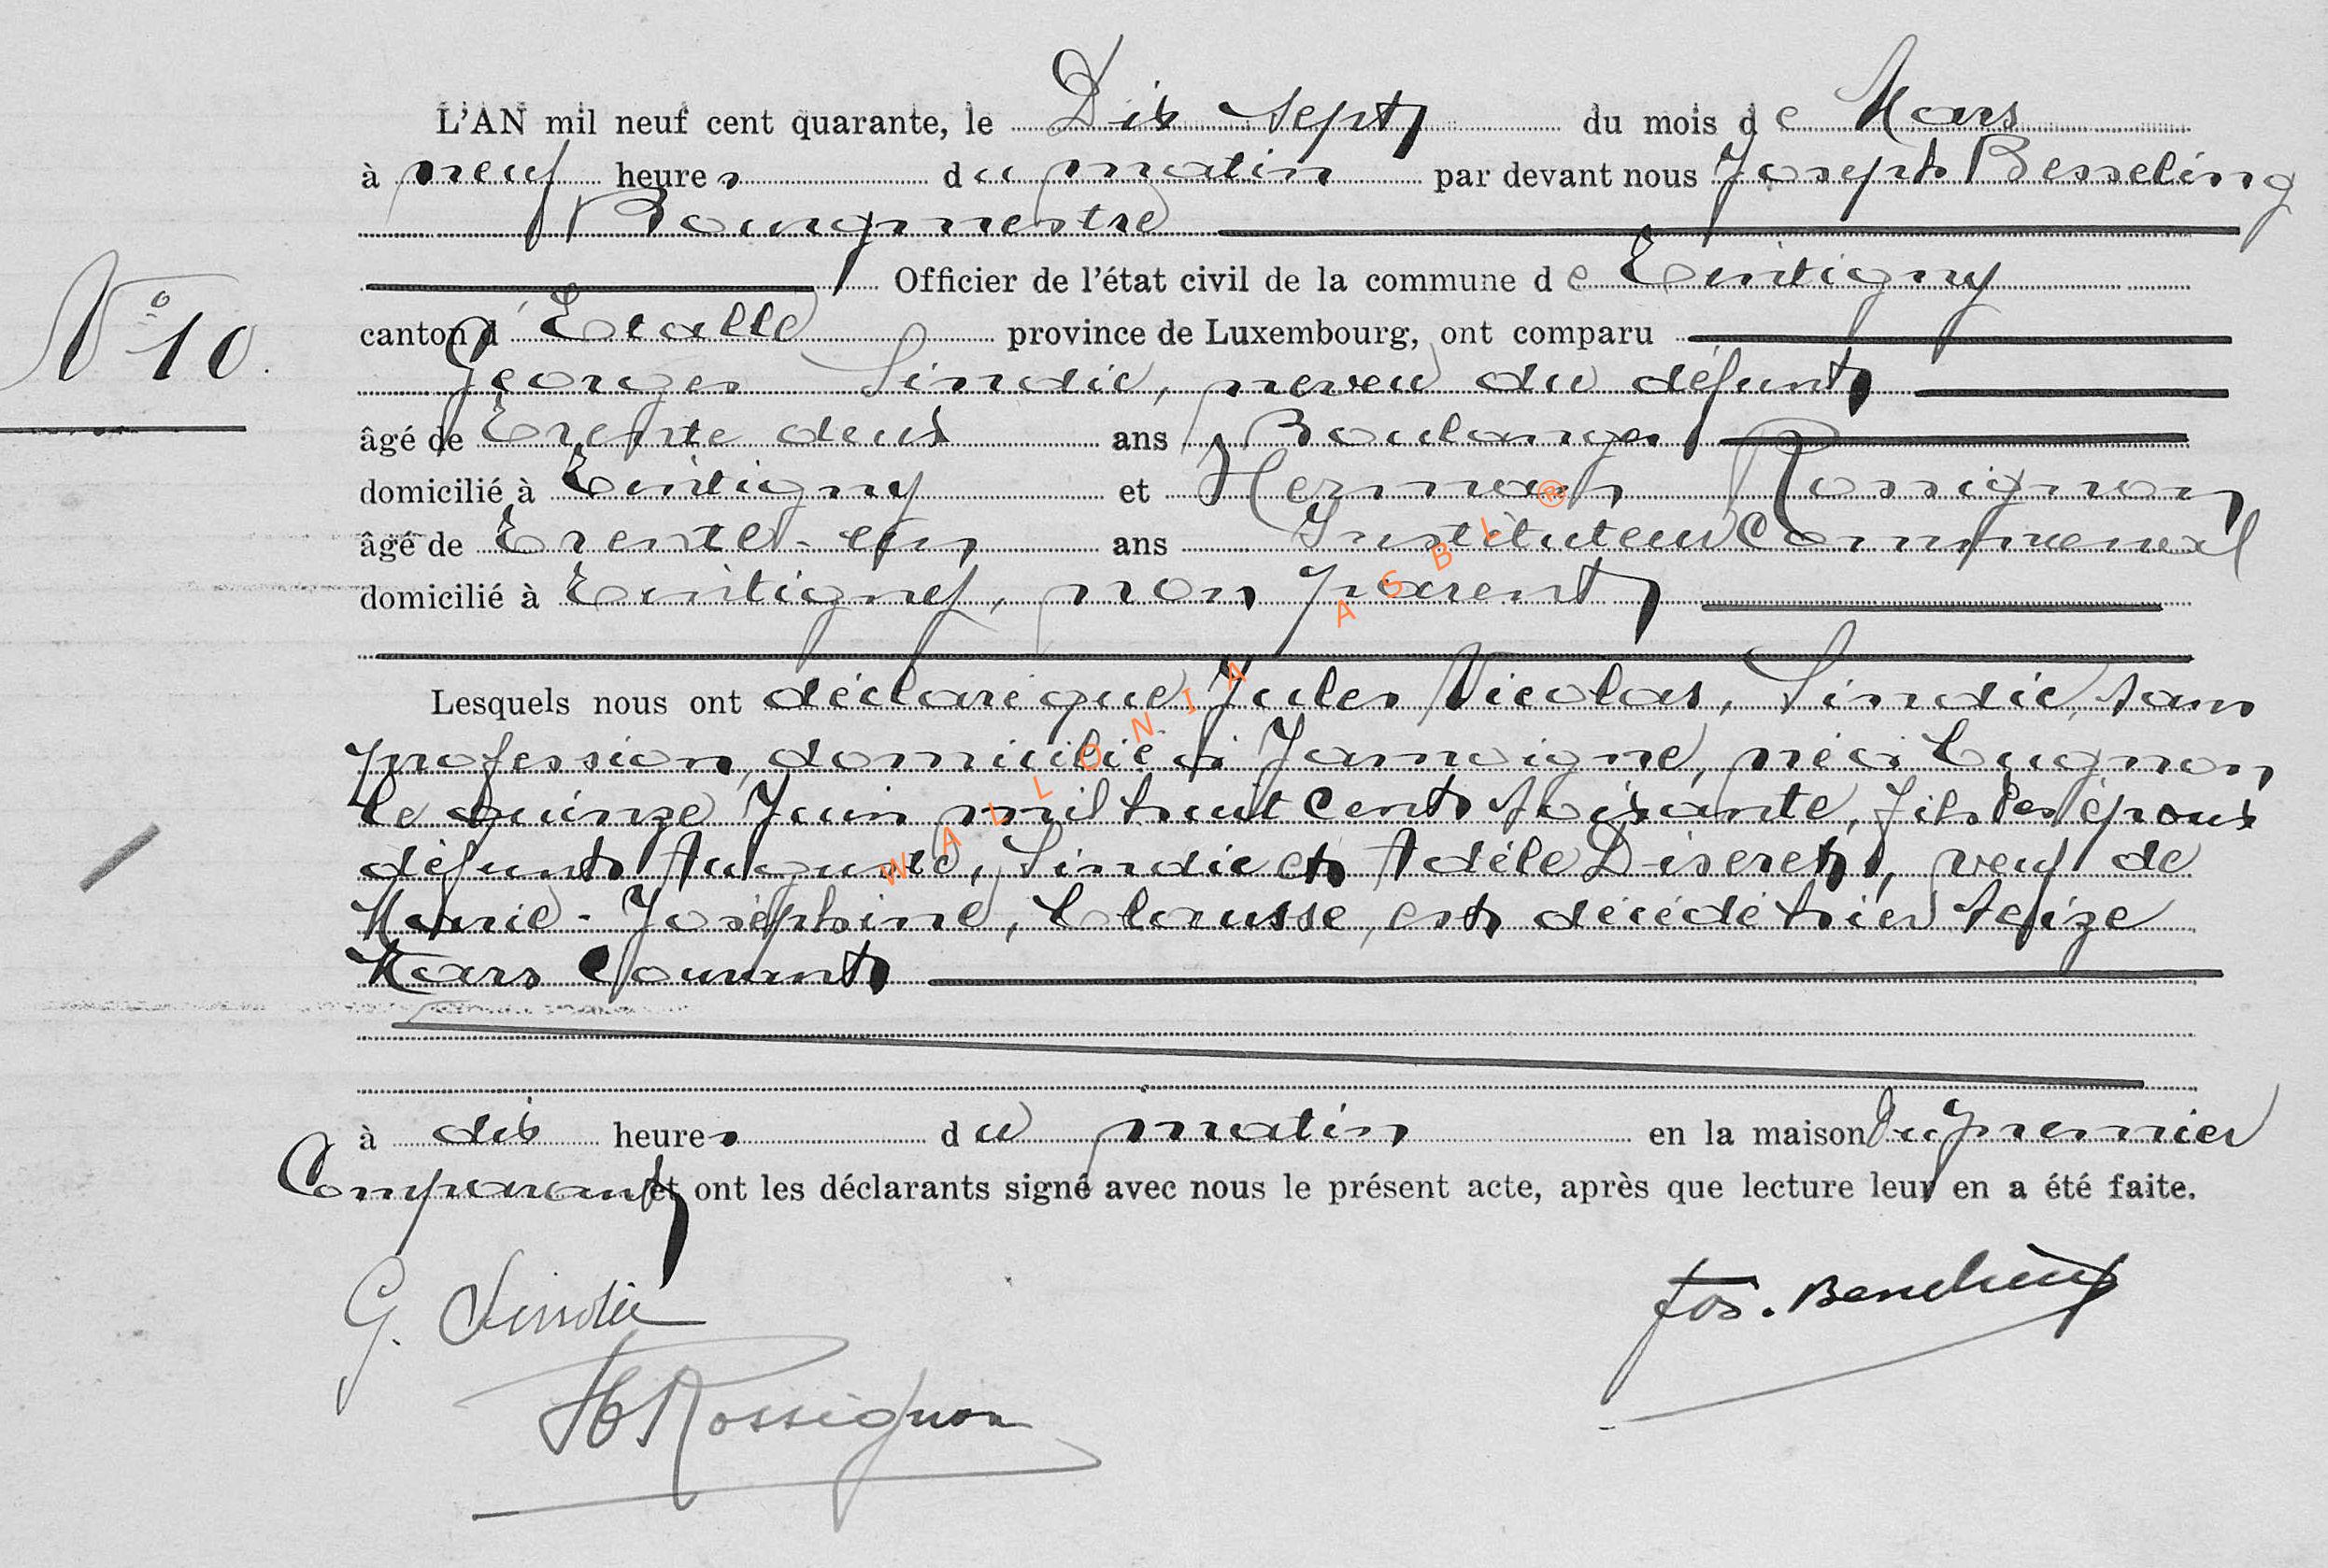 L'AN mil neuf cent quarante, le Dix sept du mois de Mars
à neuf heures du matin par devant nous Joseph Besseling
Bourgmestre
Officier de l'état civil de la commune de Tintigny
N° 10.
canton d'Etalle province de Luxembourg, ont comparu
Georges Sindic, neveu du défunt
âgé de Trente deux ans Boulanger
domicilié à Tintigny et Herman Rossignon
âgé de Trente-un ans Instituteur Communal
domicilié à Tintigny, non parent
Lesquels nous ont déclaré que Jules Nicolas, Sindic, sans
profession, domicilié à Jamoigne, né à Cugnon
le quinze Juin mil huit cent soixante, fils des époux
défunts Auguste, Sindic et Adèle Diseret, veuf de
Marie-Joséphine, Clausse, est décédé hier seize
Mars Courant
à dix heures du matin en la maison du premier
Comparant et ont les déclarants signé avec nous le présent acte, après que lecture leur en a été faite.
G. Sindic
Jos. Besseling
H Rossignon
WALLONIA ASBL ®